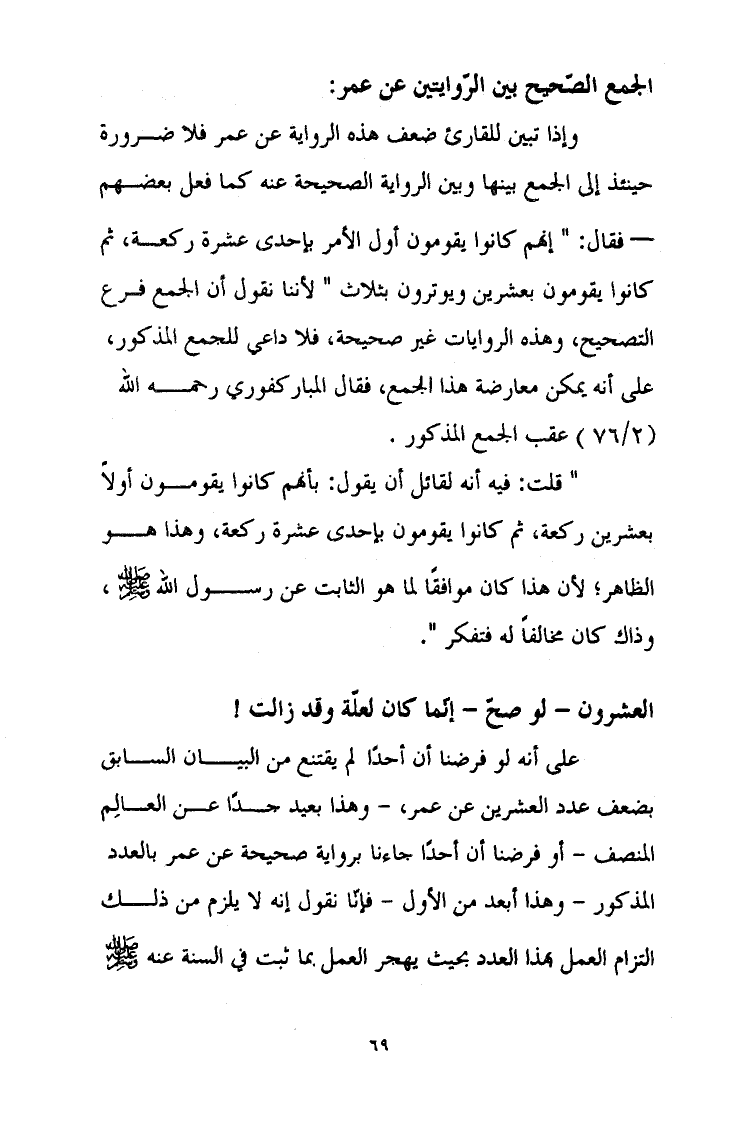 الجمع الصّحيح بين الرّوايتين عن عمر:
وإذا تبين للقارئ ضعف هذه الرواية عن عمر فلا ضـــرورة
حينئذ إلى الجمع بينها وبين الرواية الصحيحة عنه كما فعل بعضـــهم
— فقال: " إنهم كانوا يقومون أول الأمر بإحدى عشرة ركعـــة، ثم
كانوا يقومون بعشرين ويوترون بثلاث " لأننا نقول أن الجمع فـــرع
التصحيح، وهذه الروايات غير صحيحة، فلا داعي للجمع المذكور،
على أنه يمكن معارضة هذا الجمع، فقال المباركفوري رحمـــه الله
(٧٦/٢ ) عقب الجمع المذكور .
" قلت: فيه أنه لقائل أن يقول: بأنهم كانوا يقومـــون أولاً
بعشرين ركعة، ثم كانوا يقومون بإحدى عشرة ركعة، وهذا هـــو
الظاهر؛ لأن هذا كان موافقًا لما هو الثابت عن رســـول الله ﷺ ،
وذاك كان مخالفاً له فتفكر ".
العشرون – لو صحّ – إنّما كان لعلّة وقد زالت !
على أنه لو فرضنا أن أحدًا لم يقتنع من البيـــان الســـابق
بضعف عدد العشرين عن عمر، – وهذا بعيد جـــدًا عـــن العـــالِم
المنصف – أو فرضنا أن أحدًا جاءنا برواية صحيحة عن عمر بالعدد
المذكور – وهذا أبعد من الأول – فإنّا نقول إنه لا يلزم من ذلـــك
التزام العمل بهذا العدد بحيث يهجر العمل بما ثبت في السنة عنه ﷺ
٦٩